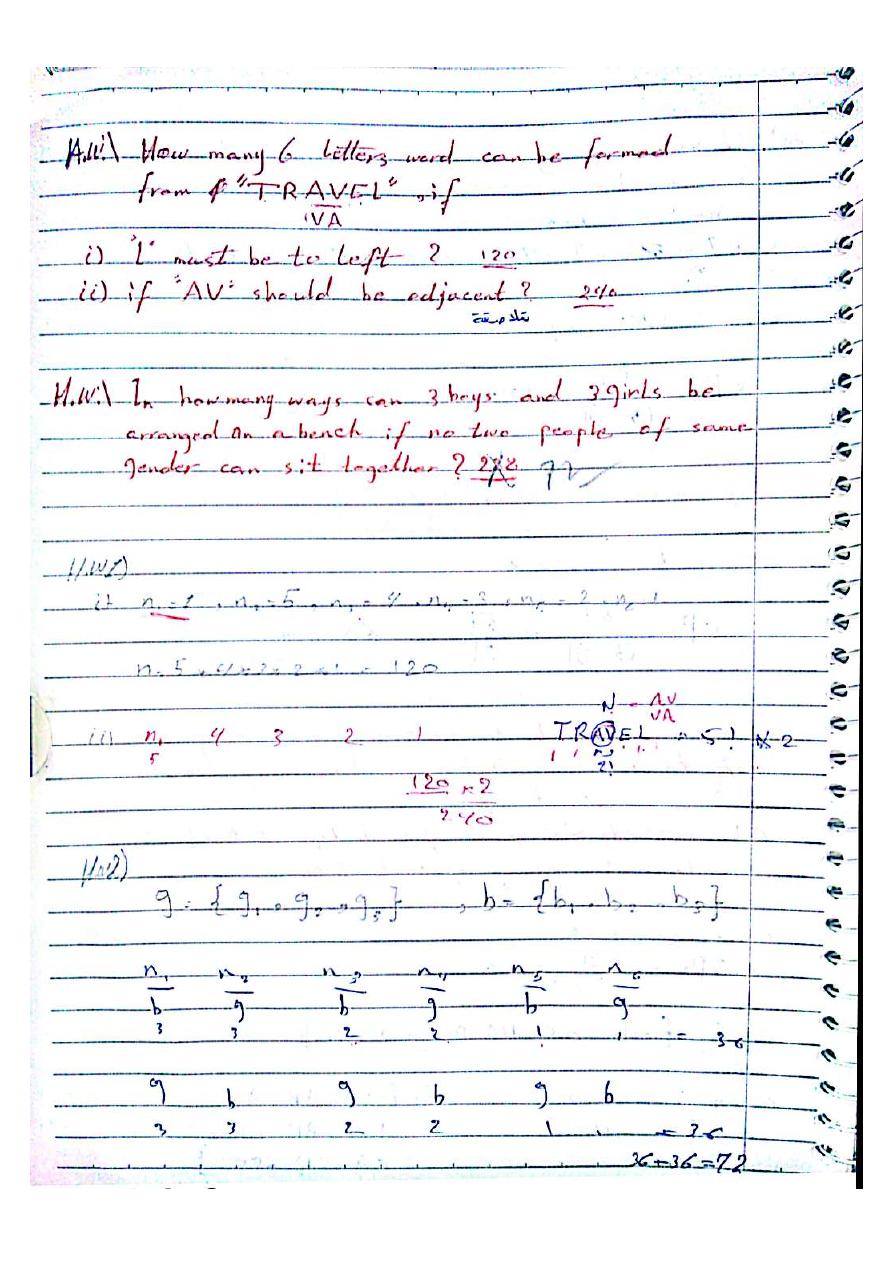 H.W:\ How many 6 Letters word can be formed
from "TRAVEL" , if
VA
i) "L" must be to left ? 120
ii) if "AV" should be adjacent ? 240
متلاصقة
H.W:\ In how many ways can 3 boys and 3 girls be
arranged on a bench if no two people of same
gender can sit together ? 72
H.W1)
i) n₁=1 , n₂=5 , n₃=4 , n₄=3 , n₅=2 , n₆ 1
n= 5 × 4 × 3 × 2 × 1 = 120
AV
VA
ii) n₁ 4 3 2 1 TRAVEL = 5! × 2
5 2!
120 × 2
240
H.w2)
g = { g₁ , g₂ , g₃ } , b = { b₁ , b₂ , b₃ }
n₁ n₂ n₃ n₄ n₅ n₆
b g b g b g
3 3 2 2 1 1 = 36
g b g b g b
3 3 2 2 1 1 = 36
36+36=72